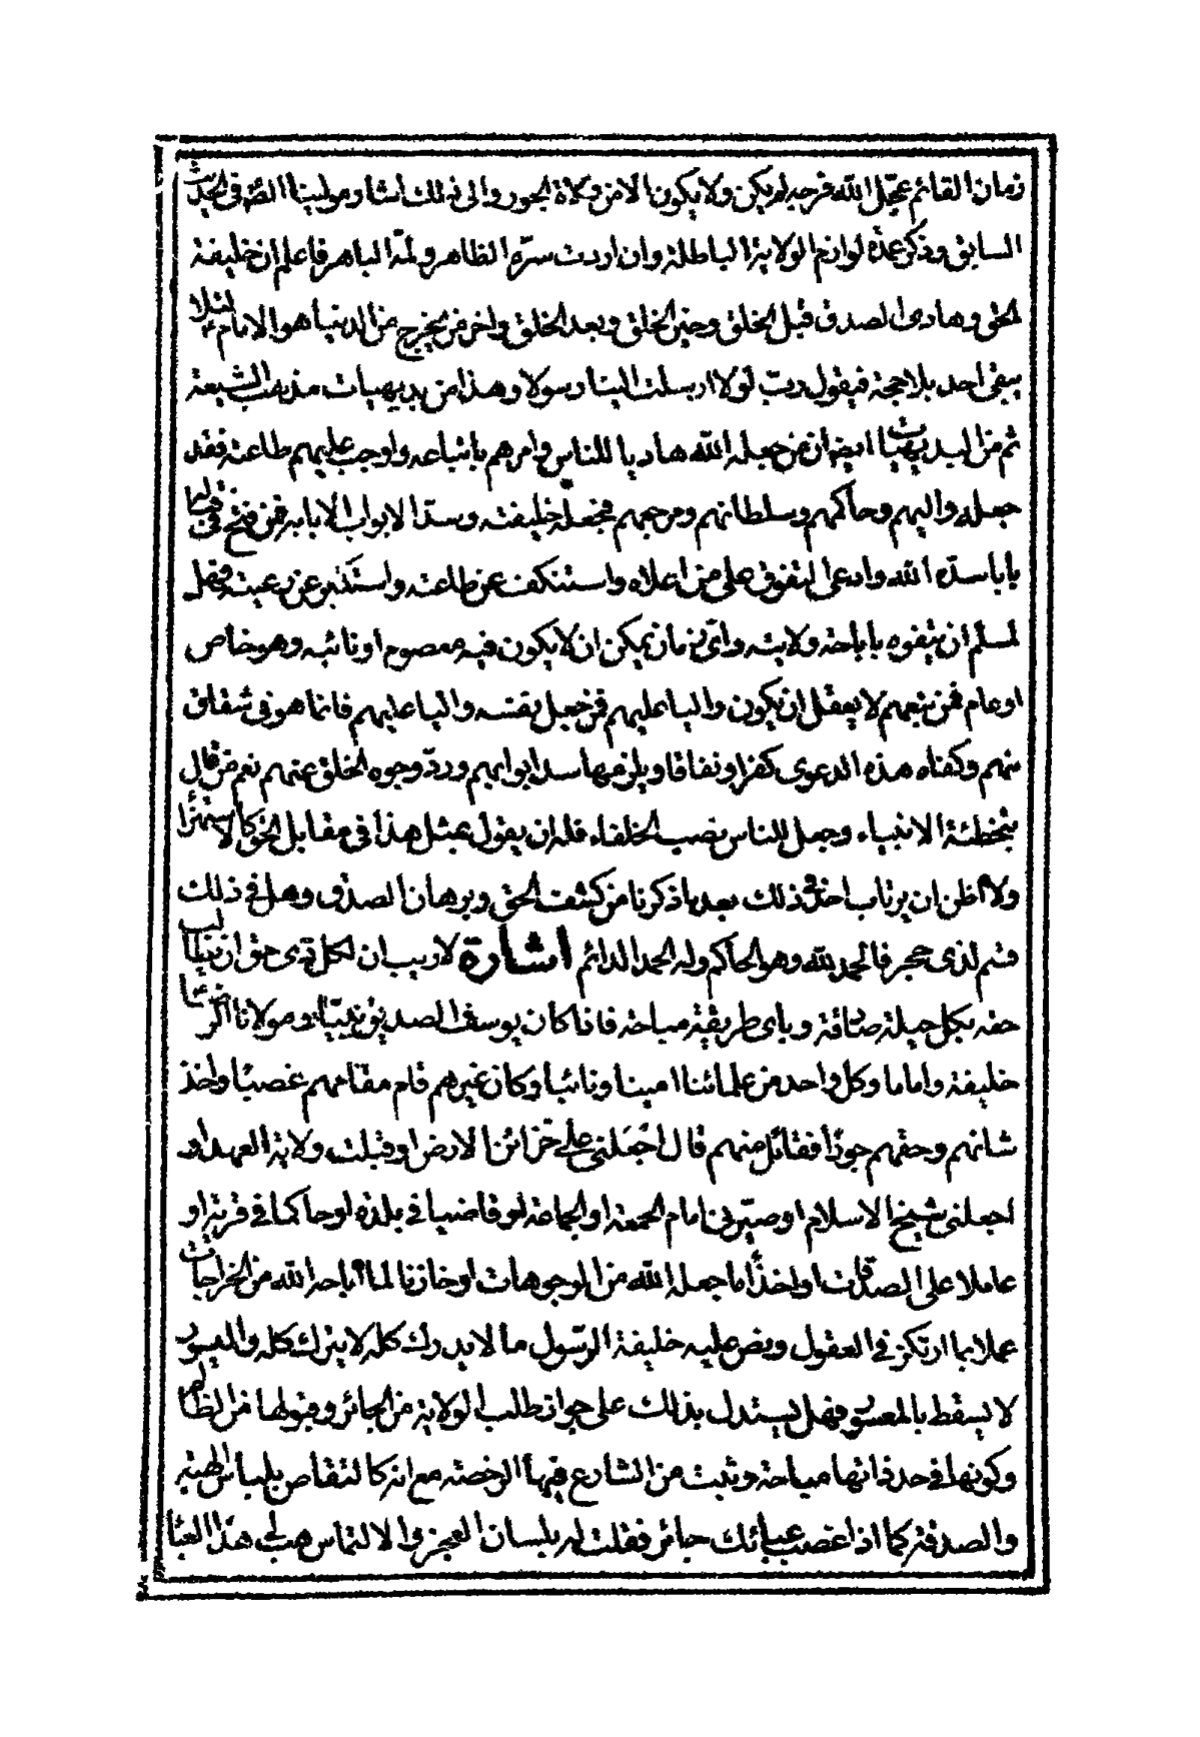 زمان القائم عجّل الله فرجه لم يكن ولا يكون الا من ولاة الجور والى ذلك اشار مولينا الصّ فى الحديث
السابق وذكر عمدة لوازم الولاية الباطلة وان اردت سرّه الظاهر ولمّه الباهر فاعلم ان خليفة
الحق وهادى الصدق قبل الخلق وحين الخلق وبعد الخلق واخر من يخرج من الدنيا هو الامام لئلا
يبقى احد بلا حجة فيقول ربّ لولا ارسلت الينا رسولا وهذا من بديهيات مذهب الشيعة
ثم من البديهيات ايضا ان من جعله الله هاديا للناس وامرهم باتباعه واوجب عليهم طاعته فقد
جعله واليهم وحاكمهم وسلطانهم ومرجعهم فجعله خليفته وسدّ الابواب الا بابه فمن فتح فى
بابا سدّه الله وادعى التفوق على من اعلاه واستنكف عن طاعته واستكبر عن رعيته فهل
لمسلم ان يتفوه باباحة ولايته واىّ زمان يمكن ان لا يكون فيه معصوم او نائبه وهو خاص
او عام فمن يتبعهم لا يعقل ان يكون واليا عليهم فمن جعل نفسه واليا عليهم فانما هو فى شقاق
منهم وكفاه هذه الدعوى كفرا ونفاقا ويلزمها سد ابوابهم وردّ وجوه الخلق عنهم نعم من قال
بتخطئة الانبياء وجعل للناس نصب الخلفاء فله ان يقول بمثل هذا فى مقابل الحق كالاستهزاء
ولا اظن ان يرتاب احد فى ذلك بعد ما ذكرنا من كشف الحق وبرهان الصدق وهل فى ذلك
قسم لذى حجر فالحمد لله وهو الحاكم وله الحمد الدائم اشارة لا ريب ان لكل ذى حق ان يطالب
حقه بكل حيلة صادقة وباى طريقة مباحة فاذا كان يوسف الصديق نبيّا ومولانا الرضا
خليفة واماما وكل واحد من علمائنا امينا ونائبا وكان غيرهم قام مقامهم غصبا واخذ
شانهم وحقهم جورا فقائل منهم قال اجعلنى على خزائن الارض او قبلت ولاية العهد او
اجعلنى شيخ الاسلام او صيّرنى امام الجمعة او الجماعة او قاضيا فى بلدة او حاكما فى قرية او
عاملا على الصدقات او اخذا ما جعله الله من الوجوهات او خازنا لما اباحه الله من الخراجات
عملا بما ارتكز فى العقول ونص عليه خليفة الرسول ما لا يدرك كله لا يترك كله والميسور
لا يسقط بالمعسور فهل يستدل بذلك على جواز طلب الولاية من الجائر وقبولها من الظالم
وكونها فى حد ذاتها مباحة وثبت من الشارع فيها الرخصة مع انه كالتقاص بلباس الهبة
والصدقة كما اذا غصب عبائك جائر فقلت له بلسان العجز والالتماس هب لى هذا العبا